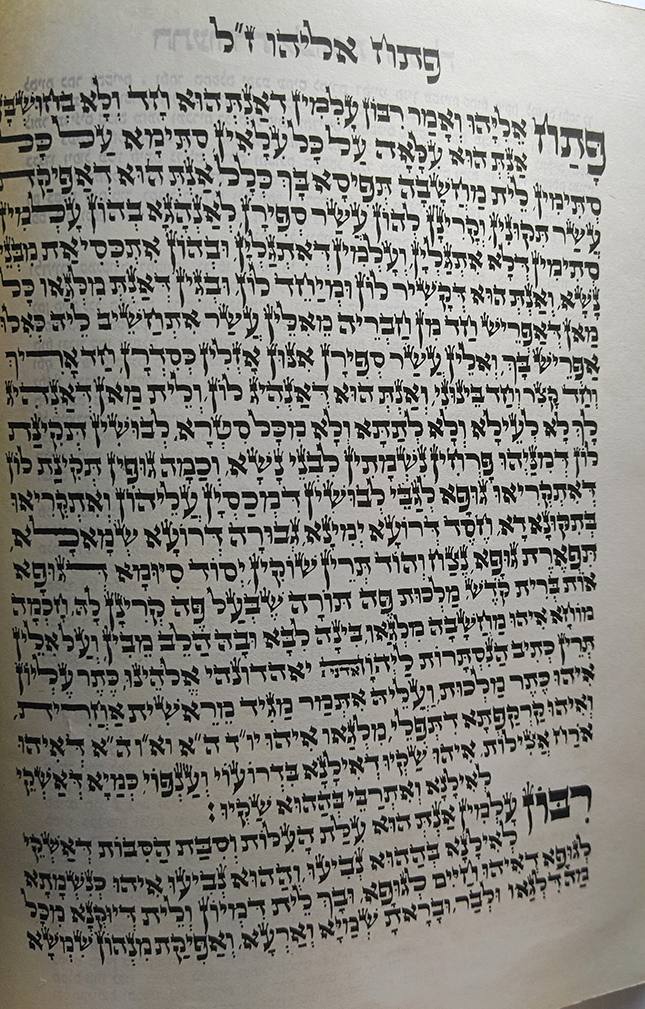 פתוח אליהו ז"ל
פתח אליהו ואמר רבון עלמין דאנת הוא חד ולא בחושבן
אנת הוא עלאה על כל עלאין סתימא על כל
סתימין, לית מחשבה תפיסא בך כלל, אנת הוא דאפיקת
עשר תקונין, וקרינן להון עשר ספירן לאנהגא בהון עלמין
סתימין דלא אתגליין, ועלמין דאתגליין, ובהון אתכסיאת מבני
נשא, ואנת הוא דקשיר לון ומיחד לון ובגין דאנת מלגאו כל
מאן דאפריש חד מן חבריה מאלין עשר אתחשיב ליה כאלו
אפריש בך, ואלין עשר ספירן אנון אזלין כסדרן, חד אריך
וחד קצר וחד בינוני, ואנת הוא דאנהיג לון, ולית מאן דאנהיג
לך לא לעילא ולא לתתא ולא מכל סטרא, לבושין תקינת
לון דמניהו פרחין נשמתין לבני נשא, וכמה גופין תקינת לון
דאתקריאו גופא לגבי לבושין דמכסין עליהון ואתקריאו
בתקונא דא, חסד דרועא ימינא גבורה דרועא שמאלא,
תפארת גופא, נצח והוד תרין שוקין, יסוד סיומא דגופא
אות ברית קדש מלכות פה תורה שבעל פה קרינן לה, חכמה
מוחא איהו מחשבה מלגאו, בינה לבא ובה הלב מבין, ועל אלין
תרין כתיב הנסתרות ליהוה יאהדונהי אלהינו, כתר עליון
איהו כתר מלכות, ועליה אתמר מגיד מראשית אחרית,
ואיהו קרקפתא דתפלי, מלגאו איהו יו"ד ה"א וא"ו ה"א דאיהו
ארח אצילות, איהו שקיו דאילנא בדרועוי וענפוי, כמיא דאשקי
לאילנא ואתרבי בההוא שקיו:
רבון עלמין אנת הוא עלת העלות וסבת הסבות דאשקי
לאילנא בההוא נביעו, וההוא נביעו איהו כנשמתא
לגופא דאיהו חיים לגופא, ובך לית דמיון ולית דיוקנא מכל
מה דלגאו ולבר, ובראת שמיא וארעא, ואפיקת מנהון שמשא